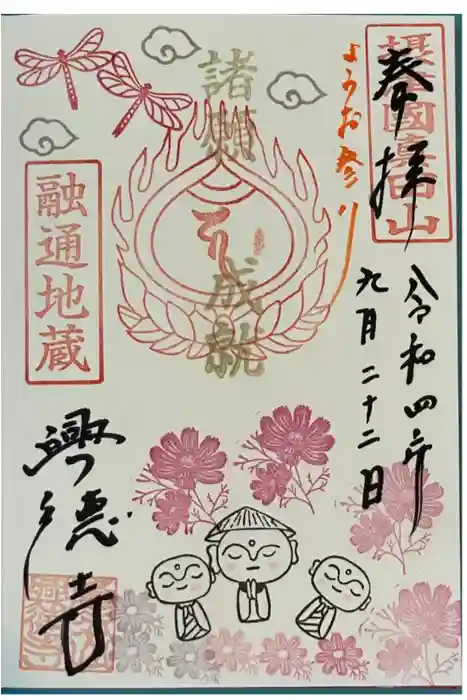 奉拝
摂津國真田山
令和四年
九月二十二日
ようお参り
諸願成就
融通地蔵
興德寺